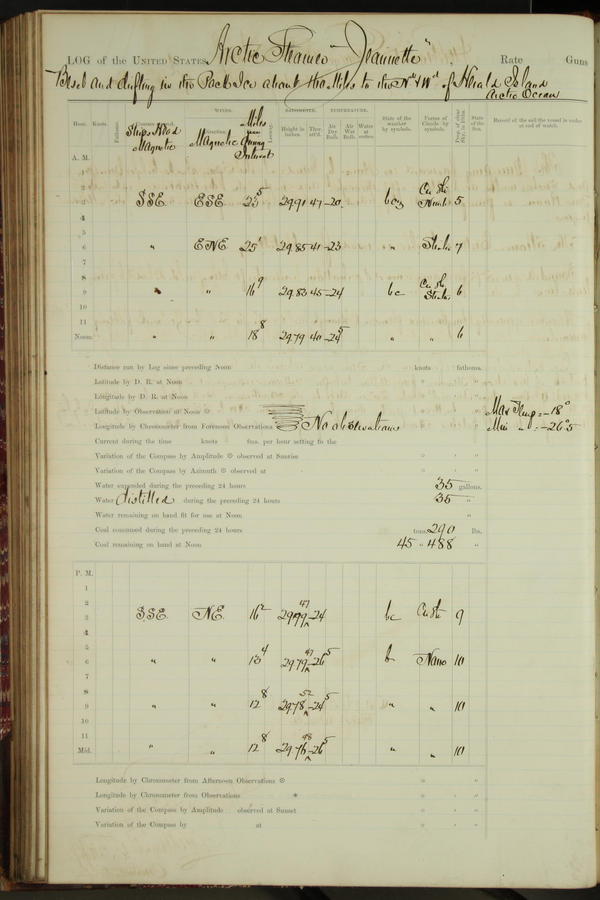 LOG of the UNITED STATES Arctic Steamer "Jeannette" Rate Guns
Beset and drifting in the Pack Ice about miles to the Nd & Wd of Herald Island
Arctic Ocean
Hour. Knots. Fathoms. Ships Head Magnetic WINDS. Magnetic Miles during Interval Leeway. BAROMETER. Height in inches. Ther. att'd. TEMPERATURE. Air Dry Bulb. Air Wet Bulb. Water at surface. State of the weather by symbols. Forms of Clouds by symbols. Prop. of clear Sky, in 10ths. State of the Sea. Record of the sail the vessel is under at end of watch.
A. M.
1
2
3 SSE ESE 23 5 29.91 47 -20. bcz Cu St. Nimb. 5
4
5
6 " ENE 25 1 29.85 41 -23 " Strat. 7
7
8
9 " " 16 9 29.83 45 -24 bc Cu St. Strat. 6
10
11
Noon. " " 18 8 29.79 40 -24 5 " " 6
Distance run by Log since preceding Noon knots fathoms.
Latitude by D. R. at Noon ° ' "
Longitude by D. R. at Noon ° ' "
Latitude by Observation at Noon ☉ ° ' " Max Temp = -18°
Longitude by Chronometer from Forenoon Observations No observations ° ' " Min " = -26°5
Current during the time knots fms. per hour setting to the
Variation of the Compass by Amplitude ☉ observed at Sunrise ° ' "
Variation of the Compass by Azimuth ☉ observed at ° ' "
Water expended during the preceding 24 hours 35 gallons.
Water distilled during the preceding 24 hours 35 "
Water remaining on hand fit for use at Noon "
Coal consumed during the preceding 24 hours tons, 290 lbs.
Coal remaining on hand at Noon 45 " 488 "
P. M.
1
2
3 SSE NE 16 2 29.79 47 -24 bc Cu St. 9
4
5
6 " " 13 4 29.79 47 -26 5 b None 10
7
8
9 " " 12 8 29.78 52 -24 5 " " 10
10
11
Mid. " " 12 8 29.76 48 -26 5 " " 10
Longitude by Chronometer from Afternoon Observations ☉ ° ' "
Longitude by Chronometer from Observations * ° ' "
Variation of the Compass by Amplitude observed at Sunset ° ' "
Variation of the Compass by at ° ' "